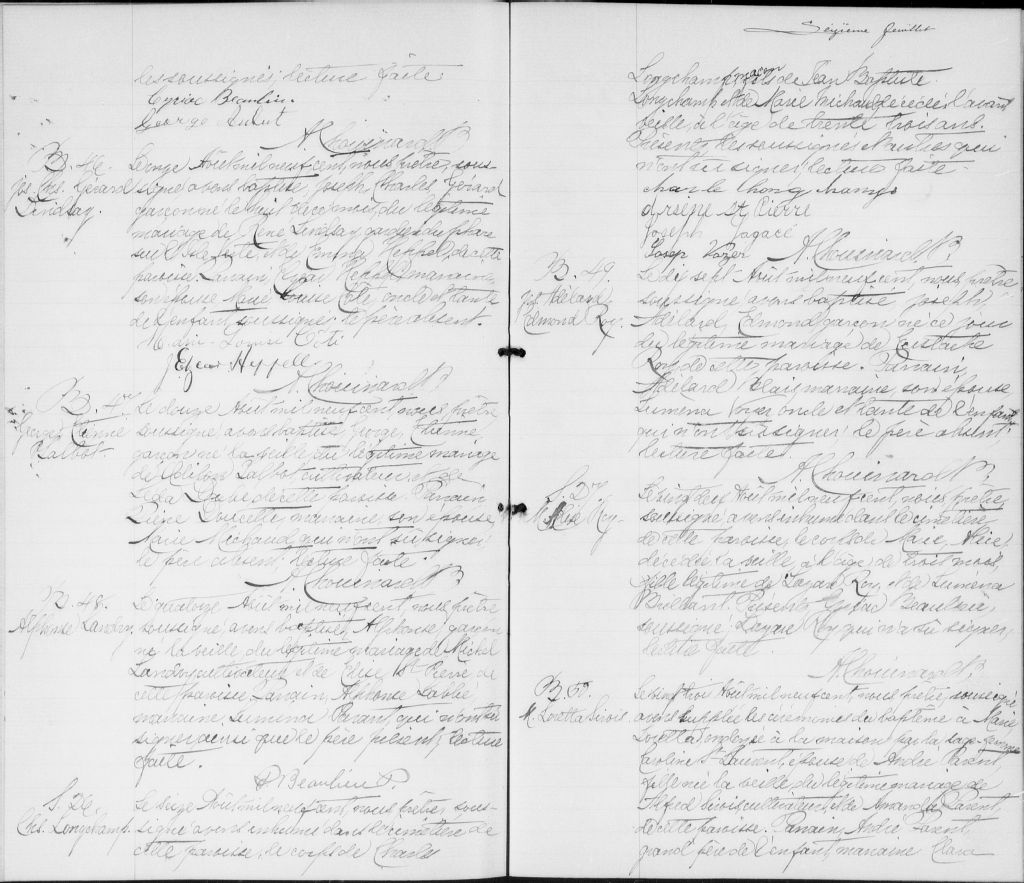 les soussignés; lecture faite
Cyrice Beaulieu.
George
A. Chouinard Ptr
B. 46.
Jos. Chs. Gérard
Lindsay.
Le onze Août mil neuf cent, nous prêtre, sous-
signé avons baptisé Joseph Charles Gérard
garçon né le huit de ce mois, du légitime
mariage de René Lindsay gardien du phare
sur l'Isle verte, et de Emma Heppel, de cette
paroisse. Parrain Heppel marraine,
son épouse Marie Louise Côté oncle et tante
de l'enfant, soussignés; le père absent.
Louise Côté
A. Chouinard Ptr
B. 47.
Georges Etienne
Talbot.
Le douze Août mil neuf cent nous prêtre
soussigné avons baptisé George Etienne
garçon né la veille du légitime mariage
de Talbot cultivateur et de
Dubé de cette paroisse. Parrain
Doucette, marraine, son épouse
Marie Michaud qui n'ont su signer;
le père absent, lecture faite.
A. Chouinard Ptr
B. 48.
Alphonse Landry
Quatorze Août mil neuf cent, nous prêtre
soussigné avons baptisé, Alphonse garçon
né la veille, du légitime mariage de Michel
Landry cultivateur et de Elise St Pierre de
cette paroisse. Parrain, Alphonse
marraine Lumena Parent, qui n'ont su
signer ainsi que le père présent; lecture
faite.
Beaulieu P.
S. 26.
Chs. Longchamp.
Le seize Août mil neuf cent, nous prêtre, sous-
signé avons inhumé dans le cimetière de
cette paroisse, le corps de Charles
Seizième feuillet
Longchamp maçon fils de Jean Baptiste
Longchamp et de Marie Michaud décédé l'avant
veille, à l'âge de trente trois ans.
Présents les soussignés et autres qui
n'ont su signer, lecture faite.
Arsène St Pierre
Joseph
A. Chouinard Ptr
B. 49.
Jos. Adélard
Edmond Roy.
Le dix sept Août mil neuf cent, nous prêtre
soussigné avons baptisé Joseph
Adélard, Edmond garçon né ce jour
du légitime mariage de Eustache
Roy de cette paroisse. Parrain,
Adélard marraine, son épouse
Lumena oncle et tante de l'enfant
qui n'ont su signer; le père absent;
lecture faite.
A. Chouinard Ptr
S. 27.
M. Alice Roy
Le vingt deux Août mil neuf cent, nous prêtre,
soussigné avons inhumé dans le cimetière
de cette paroisse, le corps de Marie, Alice,
décédée la veille, à l'âge de trois mois,
fille légitime de Lazare Roy, et de Lumena
Brillant. Présents Cyrice Beaulieu,
soussigné; Lazare Roy qui n'a su signer,
lecture faite.
A. Chouinard Ptr
B. 50.
M. Loretta Sirois
Le vingt trois Août mil neuf cent, nous prêtre, soussigné
avons suppléé les cérémonies du baptême à Marie
Loretta, ondoyée à la maison par la sage-femme
Caroline St Laurent, épouse de André Parent,
fille née la veille du légitime mariage de
Alfred Sirois cultivateur et de Amanda Parent,
de cette paroisse. Parrain, André Parent,
grand père de l'enfant, marraine Clara